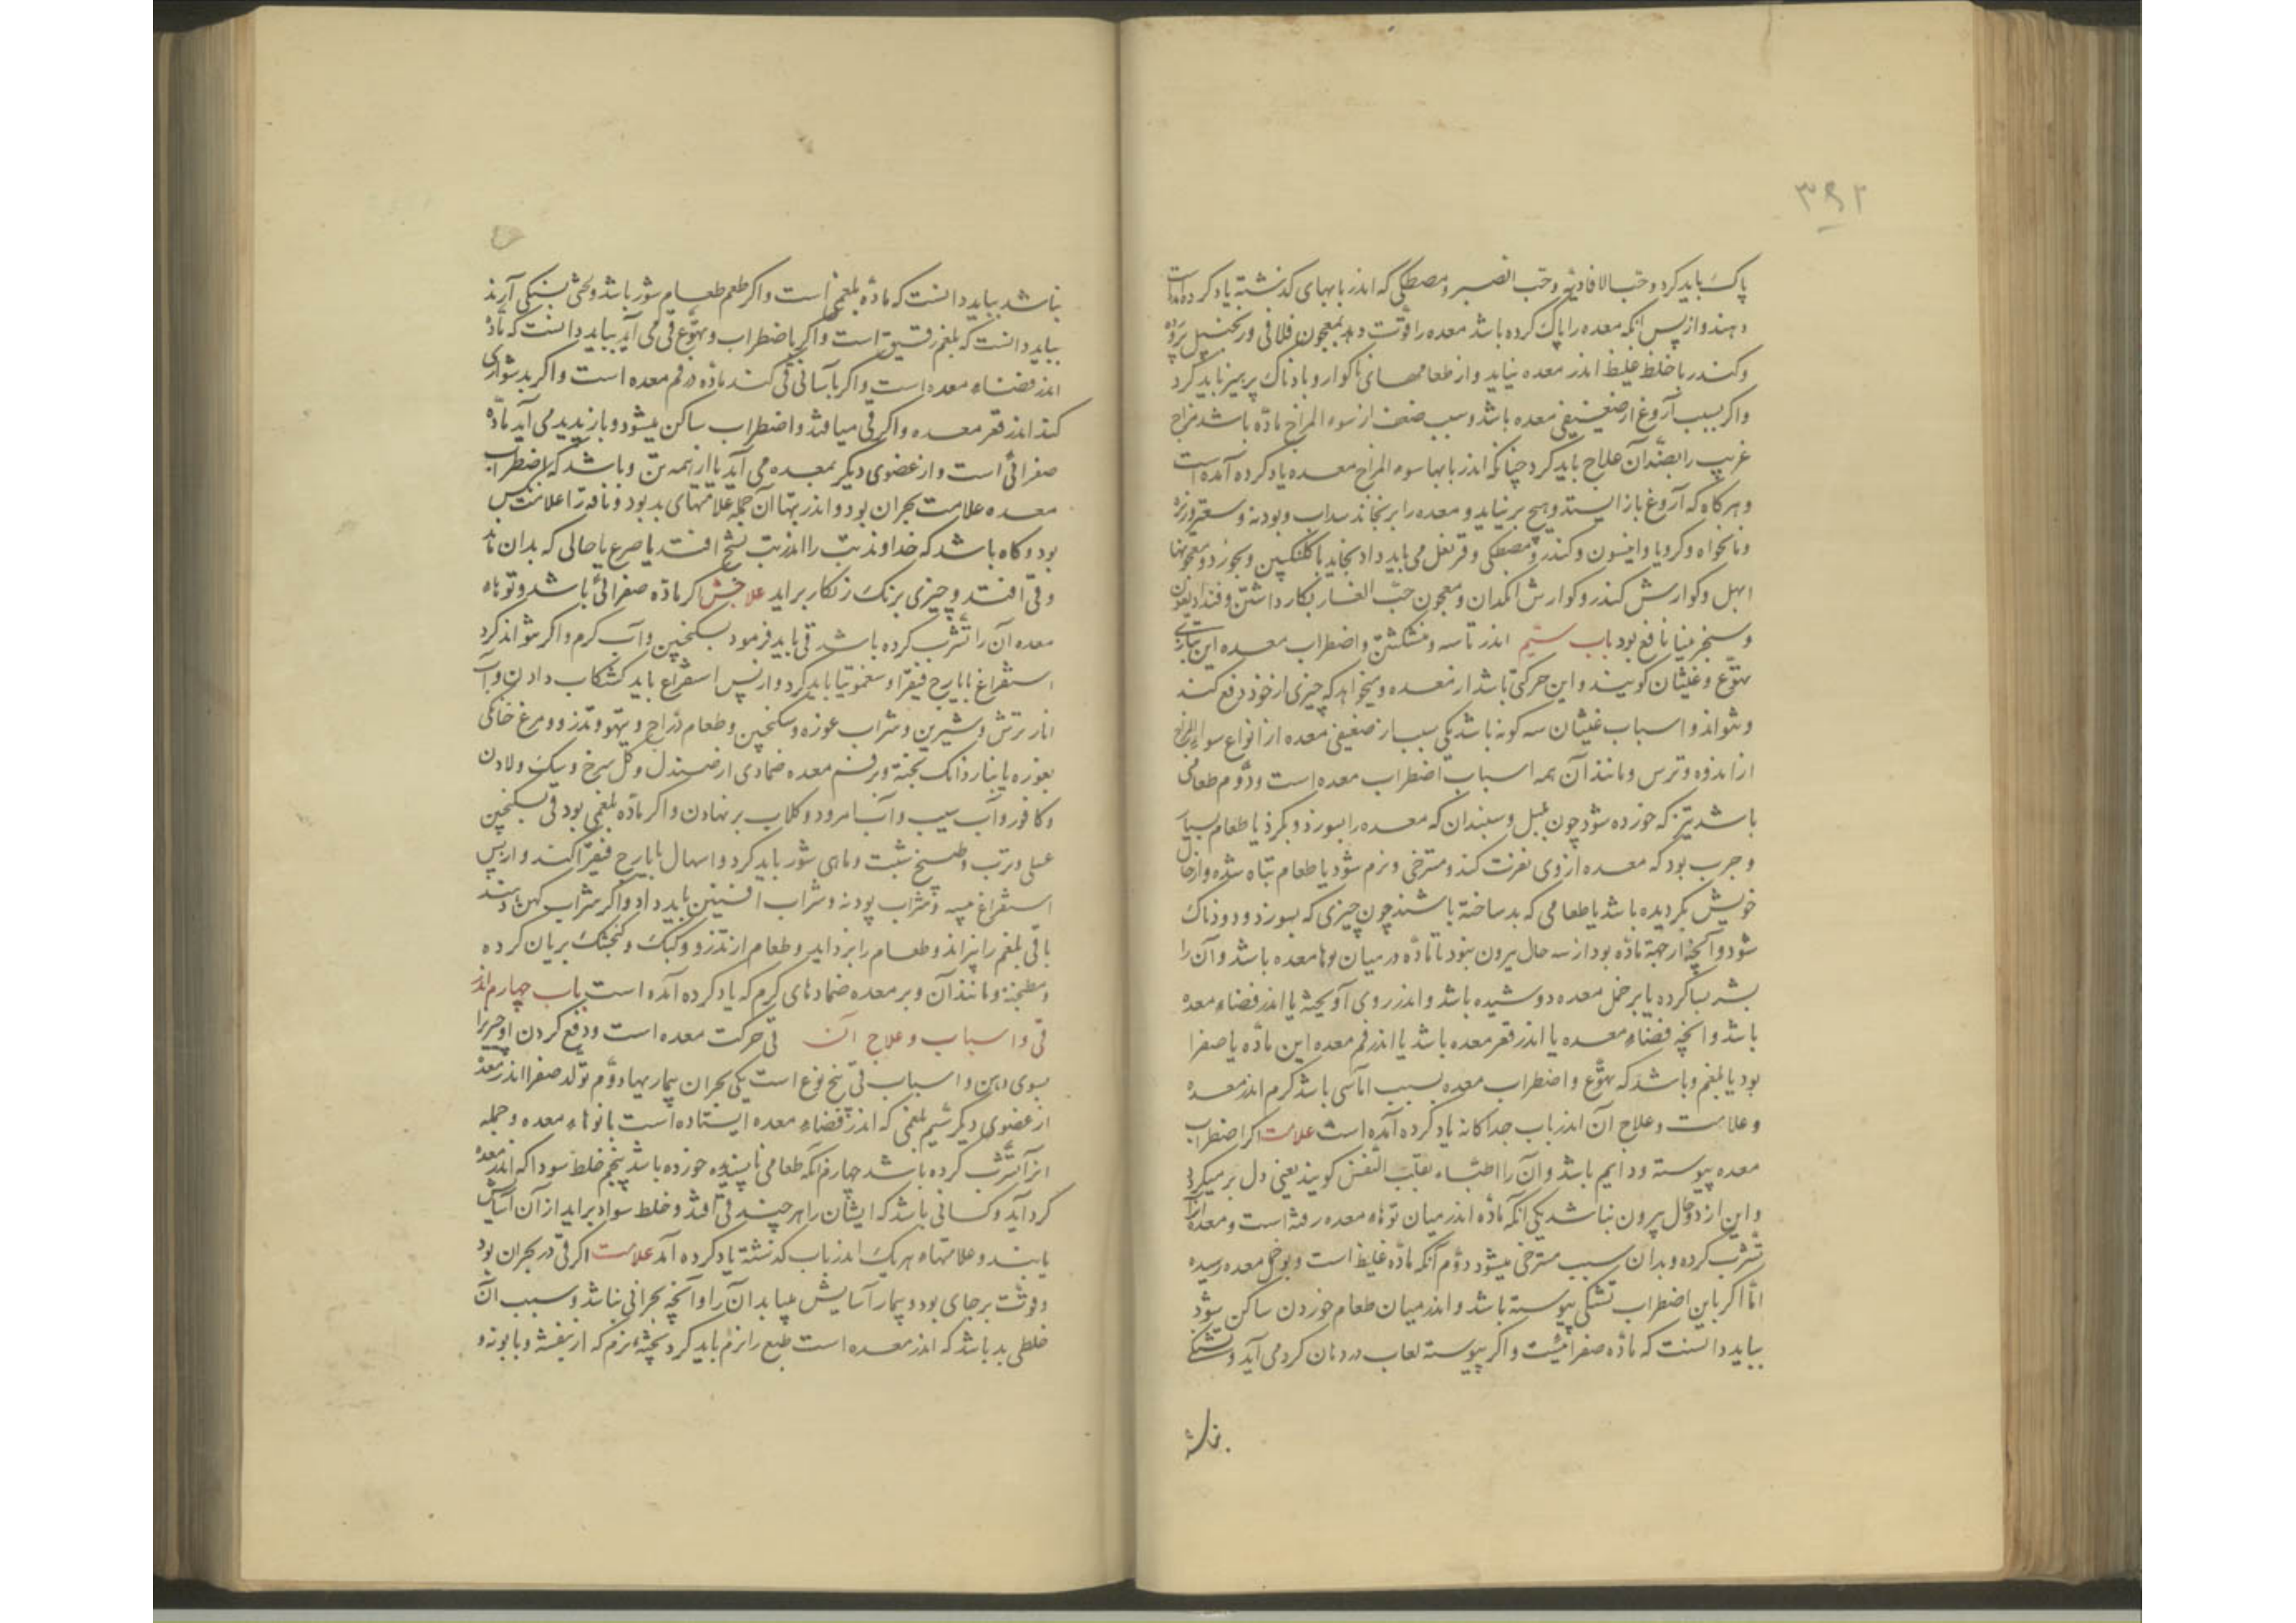 ۳۹۲
پاک باید کرد و حب الافاویه و حب الصبر و مصطکی که اندر بابهای گذشته یاد کرده آمدست
دهند و از پس انکه معده را پاک کرده باشد معده را قوّت دهد بمعجون فلافلی و زنجبیل پرورده
و کندر تا خلط غلیظ اندر معده نیاید و از طعامهای ناکوار و بادناک پرهیز باید کرد
واکر بسبب آروغ از ضعیفی معده باشد و سبب ضعف از سوء المزاج ماده باشد مزاج
غریب را بضد آن علاج باید کرد چنانکه اندر بابها سوء المزاج معده یاد کرده آمده است
و هرکاه که آروغ باز ایستد و هیچ برنیاید و معده را برنجاند سداب و بودنه و سعتر و زیره
و نانخواه و کرویا و انیسون و کندر و مصطکی و قرنفل می باید داد بخاید با کلنکبین و بخورد و معجونها
ابهل و کوارش کندر و کوارش انکدان و معجون حبّ الغار بکار داشتن و فنداد یقون
و سنجرمینا نافع بود باب سیّم اندر تاسه و منشکشتن و اضطراب معده این را بتازی
تهوّع و غثیان کویند و این حرکتی باشد از معده و میخواهد که چیزی از خود دفع کند
و نتواند و اسباب غثیان سه کونه باشد یکی بسبب از ضعیفی معده از انواع سوء المزاج
از اندوه و ترس و مانند آن همه اسباب اضطراب معده است ودوّم طعامی
باشد تیز که خورده شود چون پلپل و سپندان که معده را بسوزد و بکزد یا طعام بسیار
و چرب بود که معده از وی نفرت کند و مسترخی و نرم شود یا طعام تباه شده و از حال
خویش بکردیده باشد یا طعامی که بد ساخته باشند چون چیزی که بسوزد و دودناک
شود و آنچه از جهة ماده بود از سه حال بیرون نبود تا ماده در میان توها معده باشد و آن را
تشرب کرده یا بر خمل معده دوشیده باشد و اندر روی آویخته یا اندر فضاء معده
باشد و انچه فضاء معده یا اندر قعر معده باشد یا اندر فم معده این ماده یا صفرا
بود یا بلغم و باشد که تهوّع و اضطراب معده بسبب اماسی باشد کرم اندر معده
و علامت و علاج آن اندر باب جداکانه یاد کرده آمده است علامت اکر اضطراب
معده پیوسته و دایم باشد و آن را اطباء تقلّب النفس کویند یعنی دل برمیکردد
و این از دو حال بیرون نباشد یکی آنکه ماده اندر میان توهاء معده رفته است و معده آنرا
تشرب کرده و بدان سبب مسترخی میشود دوّم آنکه ماده غلیظ است و بر خمل معده رسیده
امّا اکر با این اضطراب تشنکی پیوسته باشد و اندر میان طعام خوردن ساکن شود
بباید دانست که ماده صفرائیست و اکر پیوسته لعاب در دهان کرد می آید و تشنکی
نباشد
نباشد بباید دانست که ماده بلغمی است و اکر طعم طعام شور باشد و لختی تشنکی آرد
بباید دانست که بلغم رقیق است و اکر با اضطراب و تهوّع قی می آید بباید دانست که ماده
اندر فضاء معده است و اکر بآسانی قی کند ماده در فم معده است و اکر بدشواری
کند اندر قعر معده و اکر قی میافتد و اضطراب ساکن میشود و باز پدید می آید ماده
صفرائی است و از عضوی دیکر بمعده می آید یا از همه تن و باشد که اضطراب
معده علامت بحران بود و اندر تبها آن جمله علامتهای بد بود و ناقه را علامت نکس
بود و کاه باشد که خداوند تب را اندر تب تشنج افتد یا صرع یا حالی که بدان ماند
و قی افتد و چیزی برنک زنکار براید علاجش اکر ماده صفرائی باشد و توهاء
معده آن را تشرب کرده باشد قی باید فرمود بسکنجبین و آب کرم و اکر نتواند کرد
استفراغ بایارج فیقرا و سقمونیا باید کرد و از پس استفراغ باید کشکاب دادن و آب
انار ترش و شیرین و شراب غوره و سکنجبین و طعام درّاج و تیهو و تذرو و مرغ خانکی
بغوره یا بنار دانک پخته و بر فم معده ضمادی از صندل و کل سرخ و سک و لادن
و کافور و آب سیب و آب امرود و کلاب برنهادن و اکر ماده بلغمی بود قی بسکنجبین
عسلی و ترب و طبیخ شبت و ماهی شور باید کرد و اسهال بایارج فیقرا کند و از پس
استفراغ میبه و شراب پودنه و شراب افسنتین باید داد و اکر شراب کهن دهند
باقی بلغم را بپزاند و طعام را بزداید و طعام از تذرو و کبک و کنجشک بریان کرده
و مطجنه و مانند آن و بر معده ضمادهای کرم که یاد کرده آمده است باب چهارم اندر
قی و اسباب و علاج آن قی حرکت معده است و دفع کردن او چیزی را
بسوی دهن و اسباب قی پنج نوع است یکی بحران بیماریها دوّم تولد صفرا اندر معده
از عضوی دیکر سیّم بلغمی که اندر فضاء معده ایستاده است یا توهاء معده و جمله
انرا تشرب کرده باشد چهارم آنکه طعامی ناپسندیده خورده باشد پنجم خلط سودا که اندر معده
کرد آید و کسانی باشد که ایشان را هر چند قی افتد و خلط سودا براید از آن آسایش
یابند و علامتهاء هر یک اندر باب کذشته یاد کرده آمد علامت اکر قی در بحران بود
و قوّت برجای بود و بیمار آسایش میابد آن را و آنچه بحرانی نباشد و سبب آن
خلطی بد باشد که اندر معده است طبع را نرم باید کرد بحقنهٔ نرم که از بنفشه و بابونه و